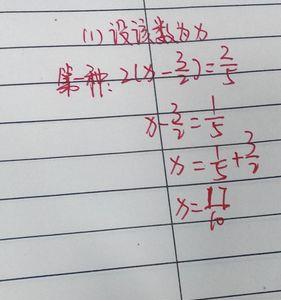 (1)设该数为x
第一种:2(x-3/2)=2/5
x-3/2=1/5
x=1/5+3/2
x=17/10